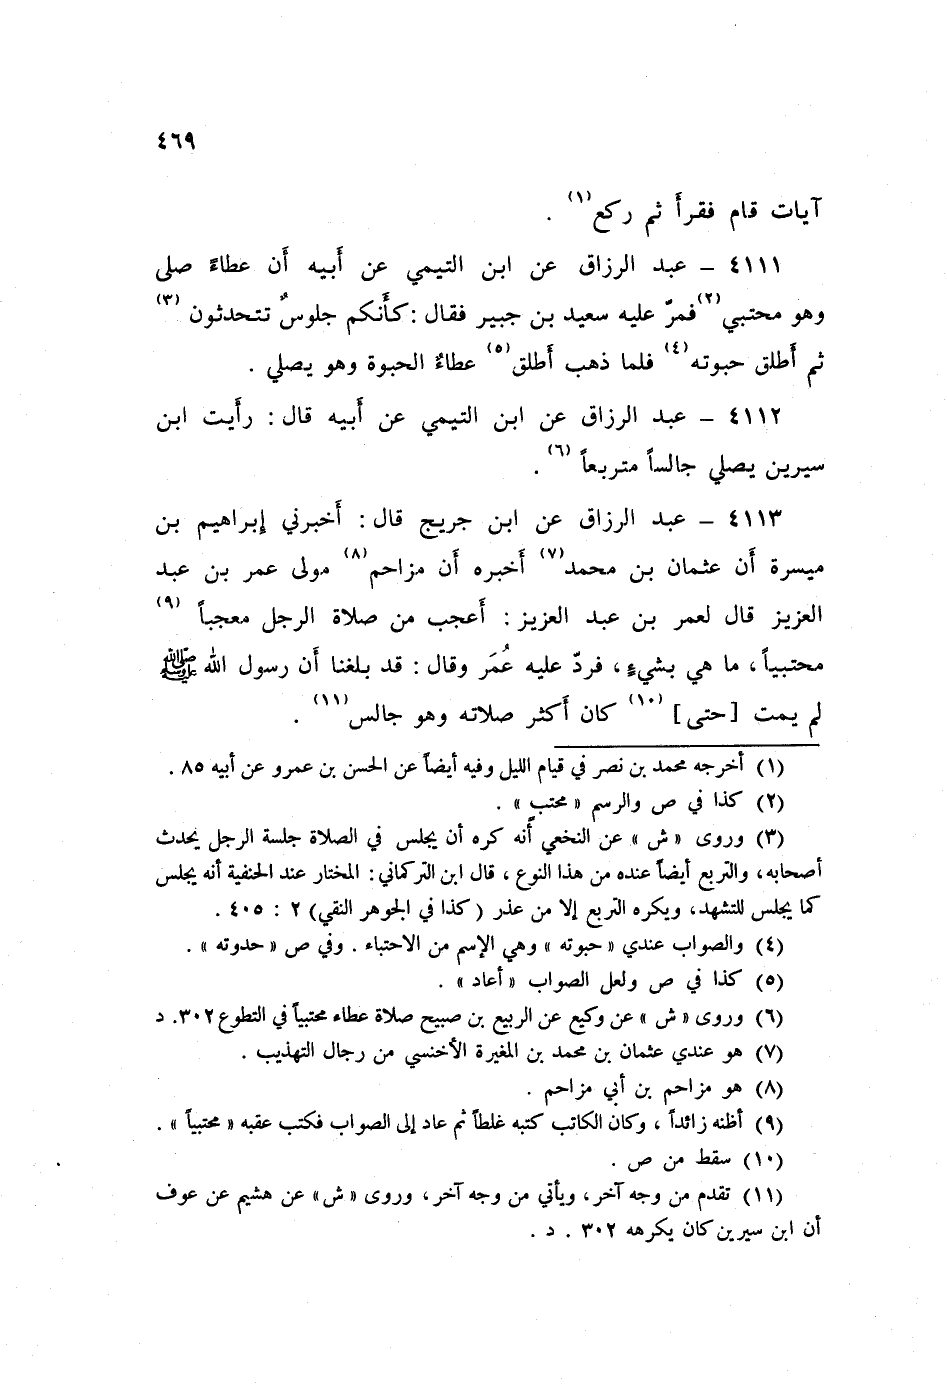 ٤٦٩
آيات قام فقرأ ثم ركع(١) .
٤١١١ – عبد الرزاق عن ابن التيمي عن أبيه أن عطاءً صلى
وهو محتبي(٢) فمرّ عليه سعيد بن جبير فقال : كأنكم جلوسٌ تتحدثون(٣)
ثم أطلق حبوته(٤) فلما ذهب أطلق(٥) عطاءٌ الحبوة وهو يصلي .
٤١١٢ – عبد الرزاق عن ابن التيمي عن أبيه قال : رأيت ابن
سيرين يصلي جالساً متربعاً(٦) .
٤١١٣ – عبد الرزاق عن ابن جريج قال : أخبرني إبراهيم بن
ميسرة أن عثمان بن محمد(٧) أخبره أن مزاحم(٨) مولى عمر بن عبد
العزيز قال لعمر بن عبد العزيز : أعجب من صلاة الرجل معجباً(٩)
محتبياً ، ما هي بشيءٍ ، فردّ عليه عُمَر وقال : قد بلغنا أن رسول الله ﷺ
لم يمت [حتى](١٠) كان أكثر صلاته وهو جالس(١١) .
(١) أخرجه محمد بن نصر في قيام الليل وفيه أيضاً عن الحسن بن عمرو عن أبيه ٨٥ .
(٢) كذا في ص والرسم « محتبٍ » .
(٣) وروى « ش » عن النخعي أنه كره أن يجلس في الصلاة جلسة الرجل يحدث
أصحابه، والتربع أيضاً عنده من هذا النوع ، قال ابن التركماني : المختار عند الحنفية أنه يجلس
كما يجلس للتشهد، ويكره التربع إلا من عذر ( كذا في الجوهر النقي) ٢ : ٤٠٥ .
(٤) والصواب عندي « حبوته » وهي الإسم من الاحتباء . وفي ص « حدوته » .
(٥) كذا في ص ولعل الصواب « أعاد » .
(٦) وروى « ش » عن وكيع عن الربيع بن صبيح صلاة عطاء محتبياً في التطوع ٣٠٢. د
(٧) هو عندي عثمان بن محمد بن المغيرة الأخنسي من رجال التهذيب .
(٨) هو مزاحم بن أبي مزاحم .
(٩) أظنه زائداً ، وكان الكاتب كتبه غلطاً ثم عاد إلى الصواب فكتب عقبه « محتبياً » .
(١٠) سقط من ص .
(١١) تقدم من وجه آخر، ويأتي من وجه آخر، وروى « ش» عن هشيم عن عوف
أن ابن سيرين كان يكرهه ٣٠٢ . د .